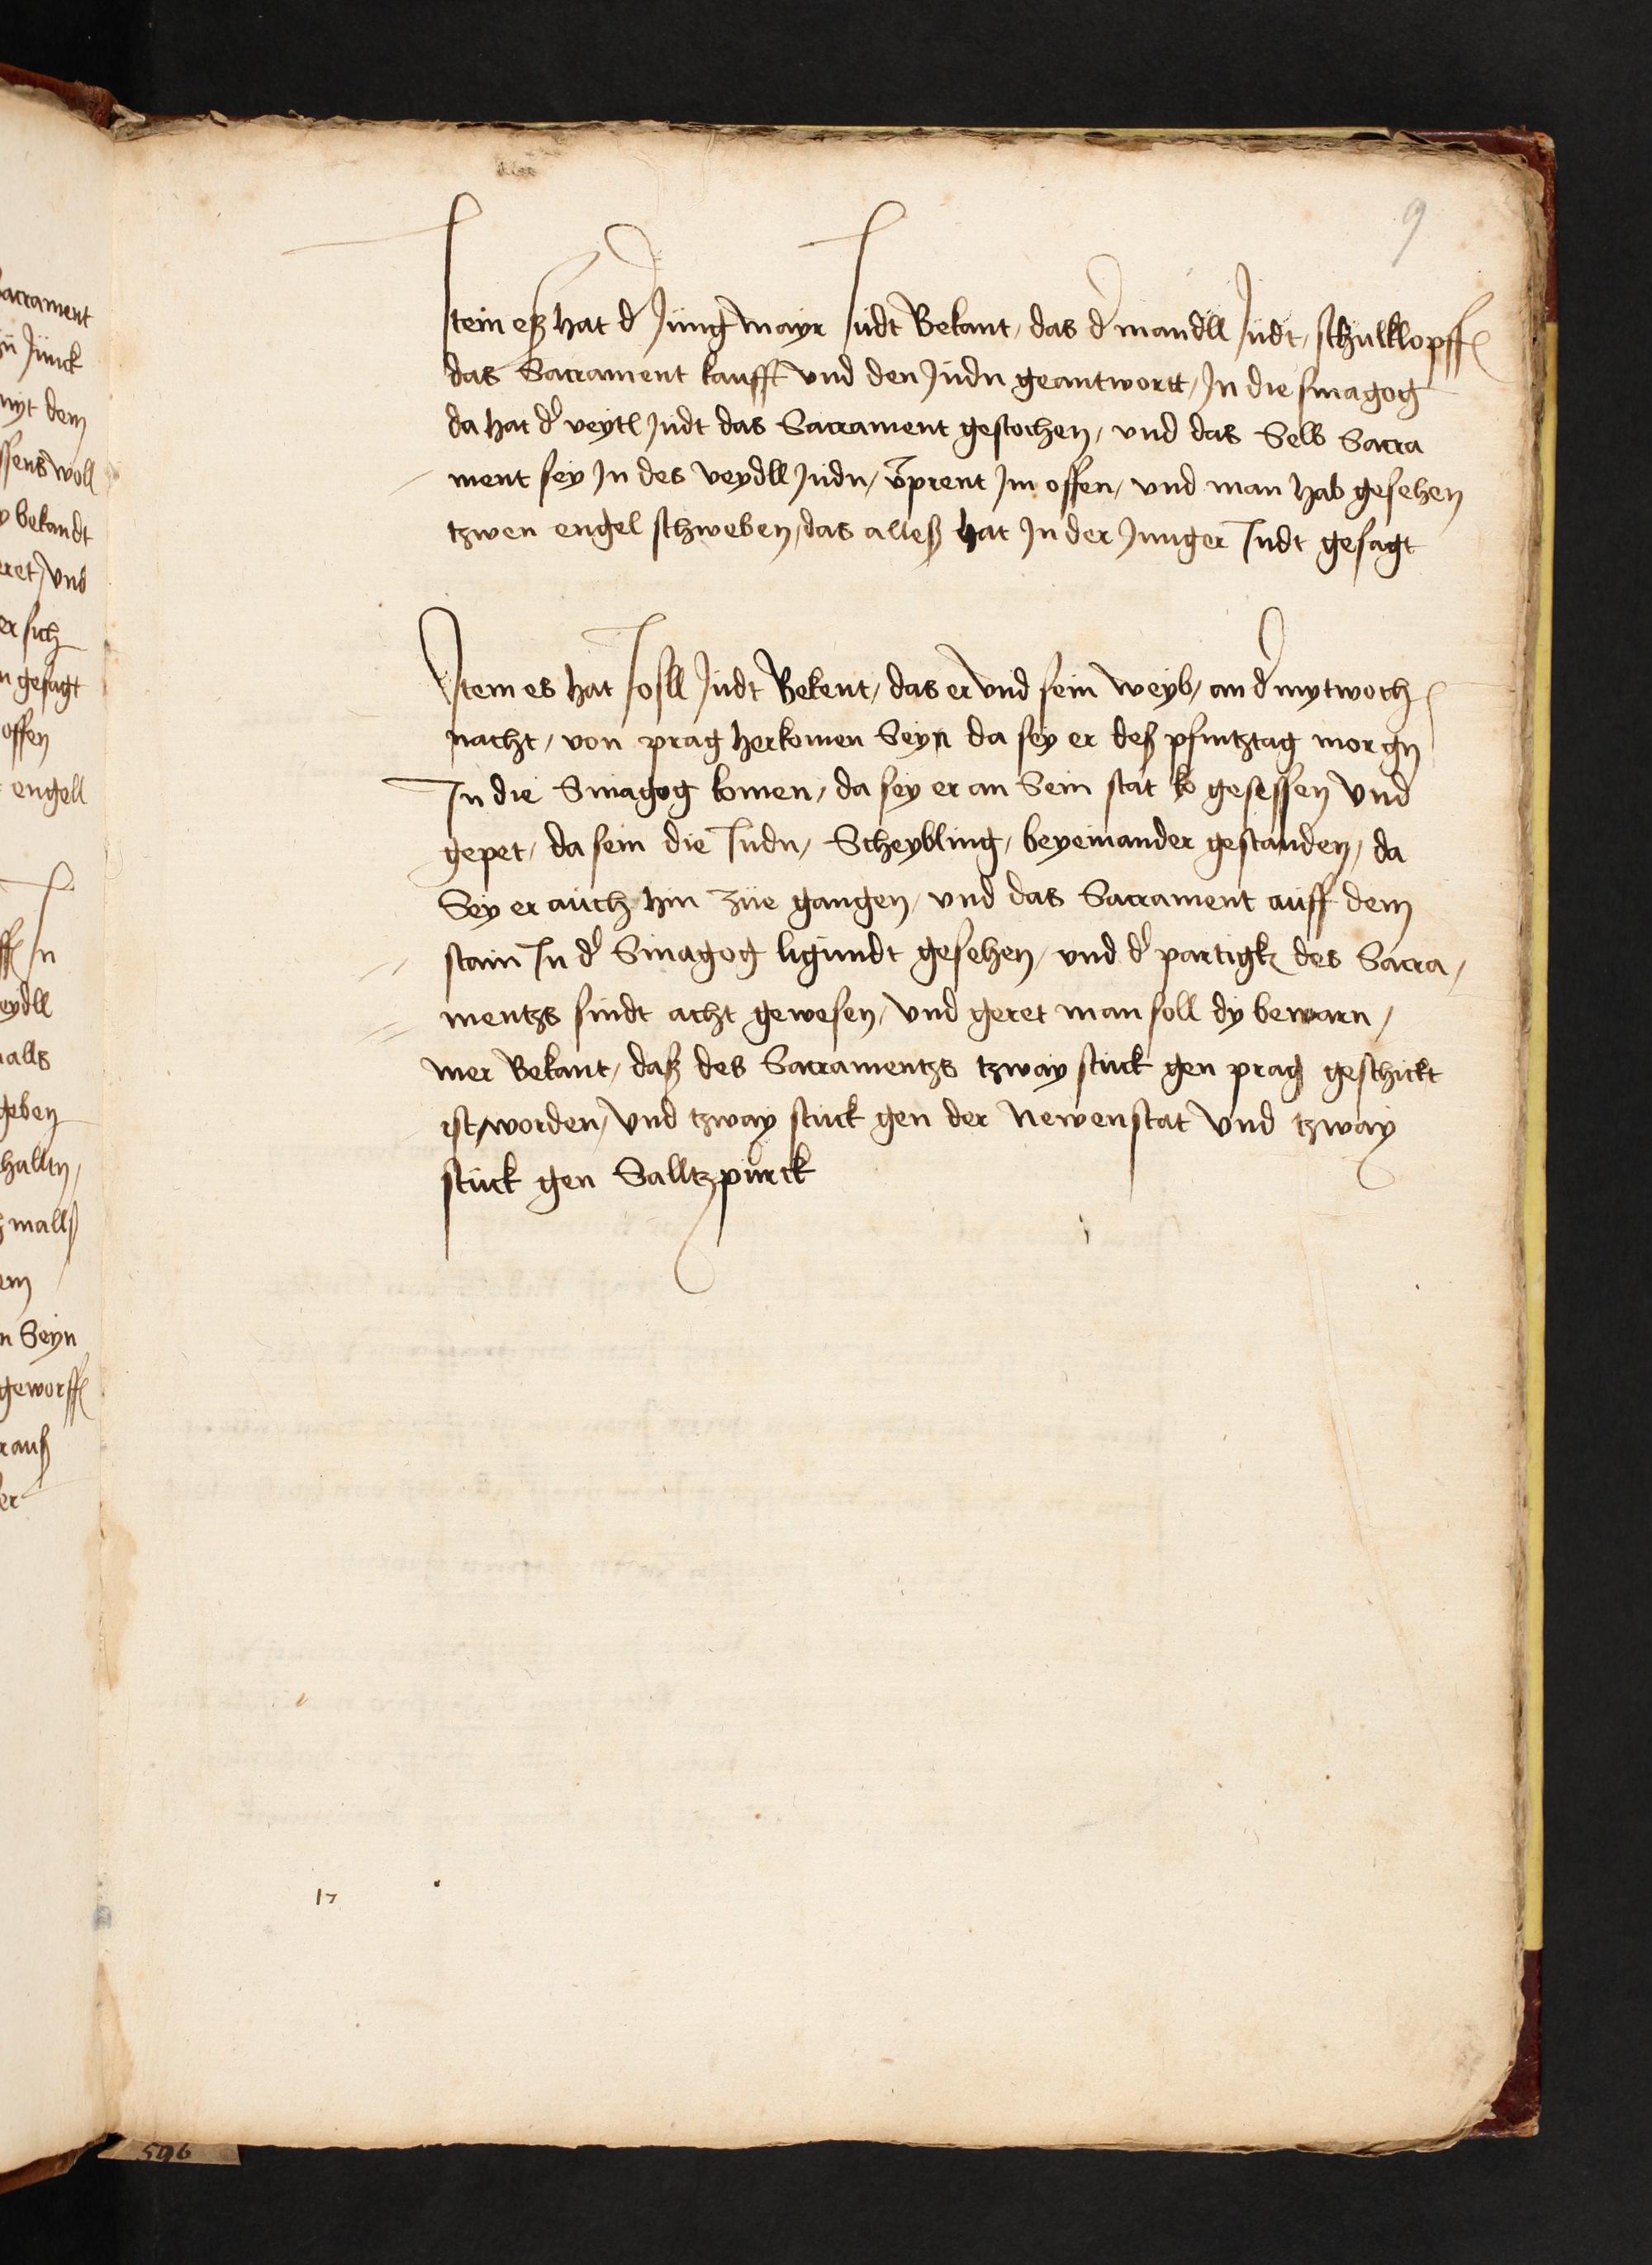 9
Item eß hat d' Jung mayr Judt Bekant / das d' mandll Judt / schulklopff
das Sacrament kaufft vnd den Judn geantwortt / Jn die sinagog
da hat d' veytl Judt das Sacrament gestochen / vnd das Selb Sacra
ment sey Jn des veydll Judn / v̄prent Jm offen / vnd man hab gesehen
tzwen engel schweben / das alleß hat Jn der Junger Judt gesagt
Item es hat Josll Judt Bekent / das er vnd sein weyb / an d' mytwoch
nacht / von prag herkomen Seyn da sey er deß pfintztag morgn
Jn die Sinagog komen / da sey er an Sein stat gesessen vnd
gepet / da sein die Judn / Scheybling / beyeinander gestanden / da
Sey er auch hin züe gangen / vnd das Sacrament auff dem
stain Jn d' Sinagog ligundt gesehen / vnd d' partigk des Sacra /
mentzs sindt acht gewesen / vnd geret man soll dy bewarn /
mer Bekant / daß des Sacramentzs tzway stuck gen prag geschickt
ist / worden / vnd tzway stuck gen der Newenstat vnd tzway
stuck gen Salltzpurck
17
596
sacrament
zu Junck
myt dem
bekandt
vnd
er sich
gesagt
offen
engell
Jn
veydll
geben
halltn /
Seyn
geworff